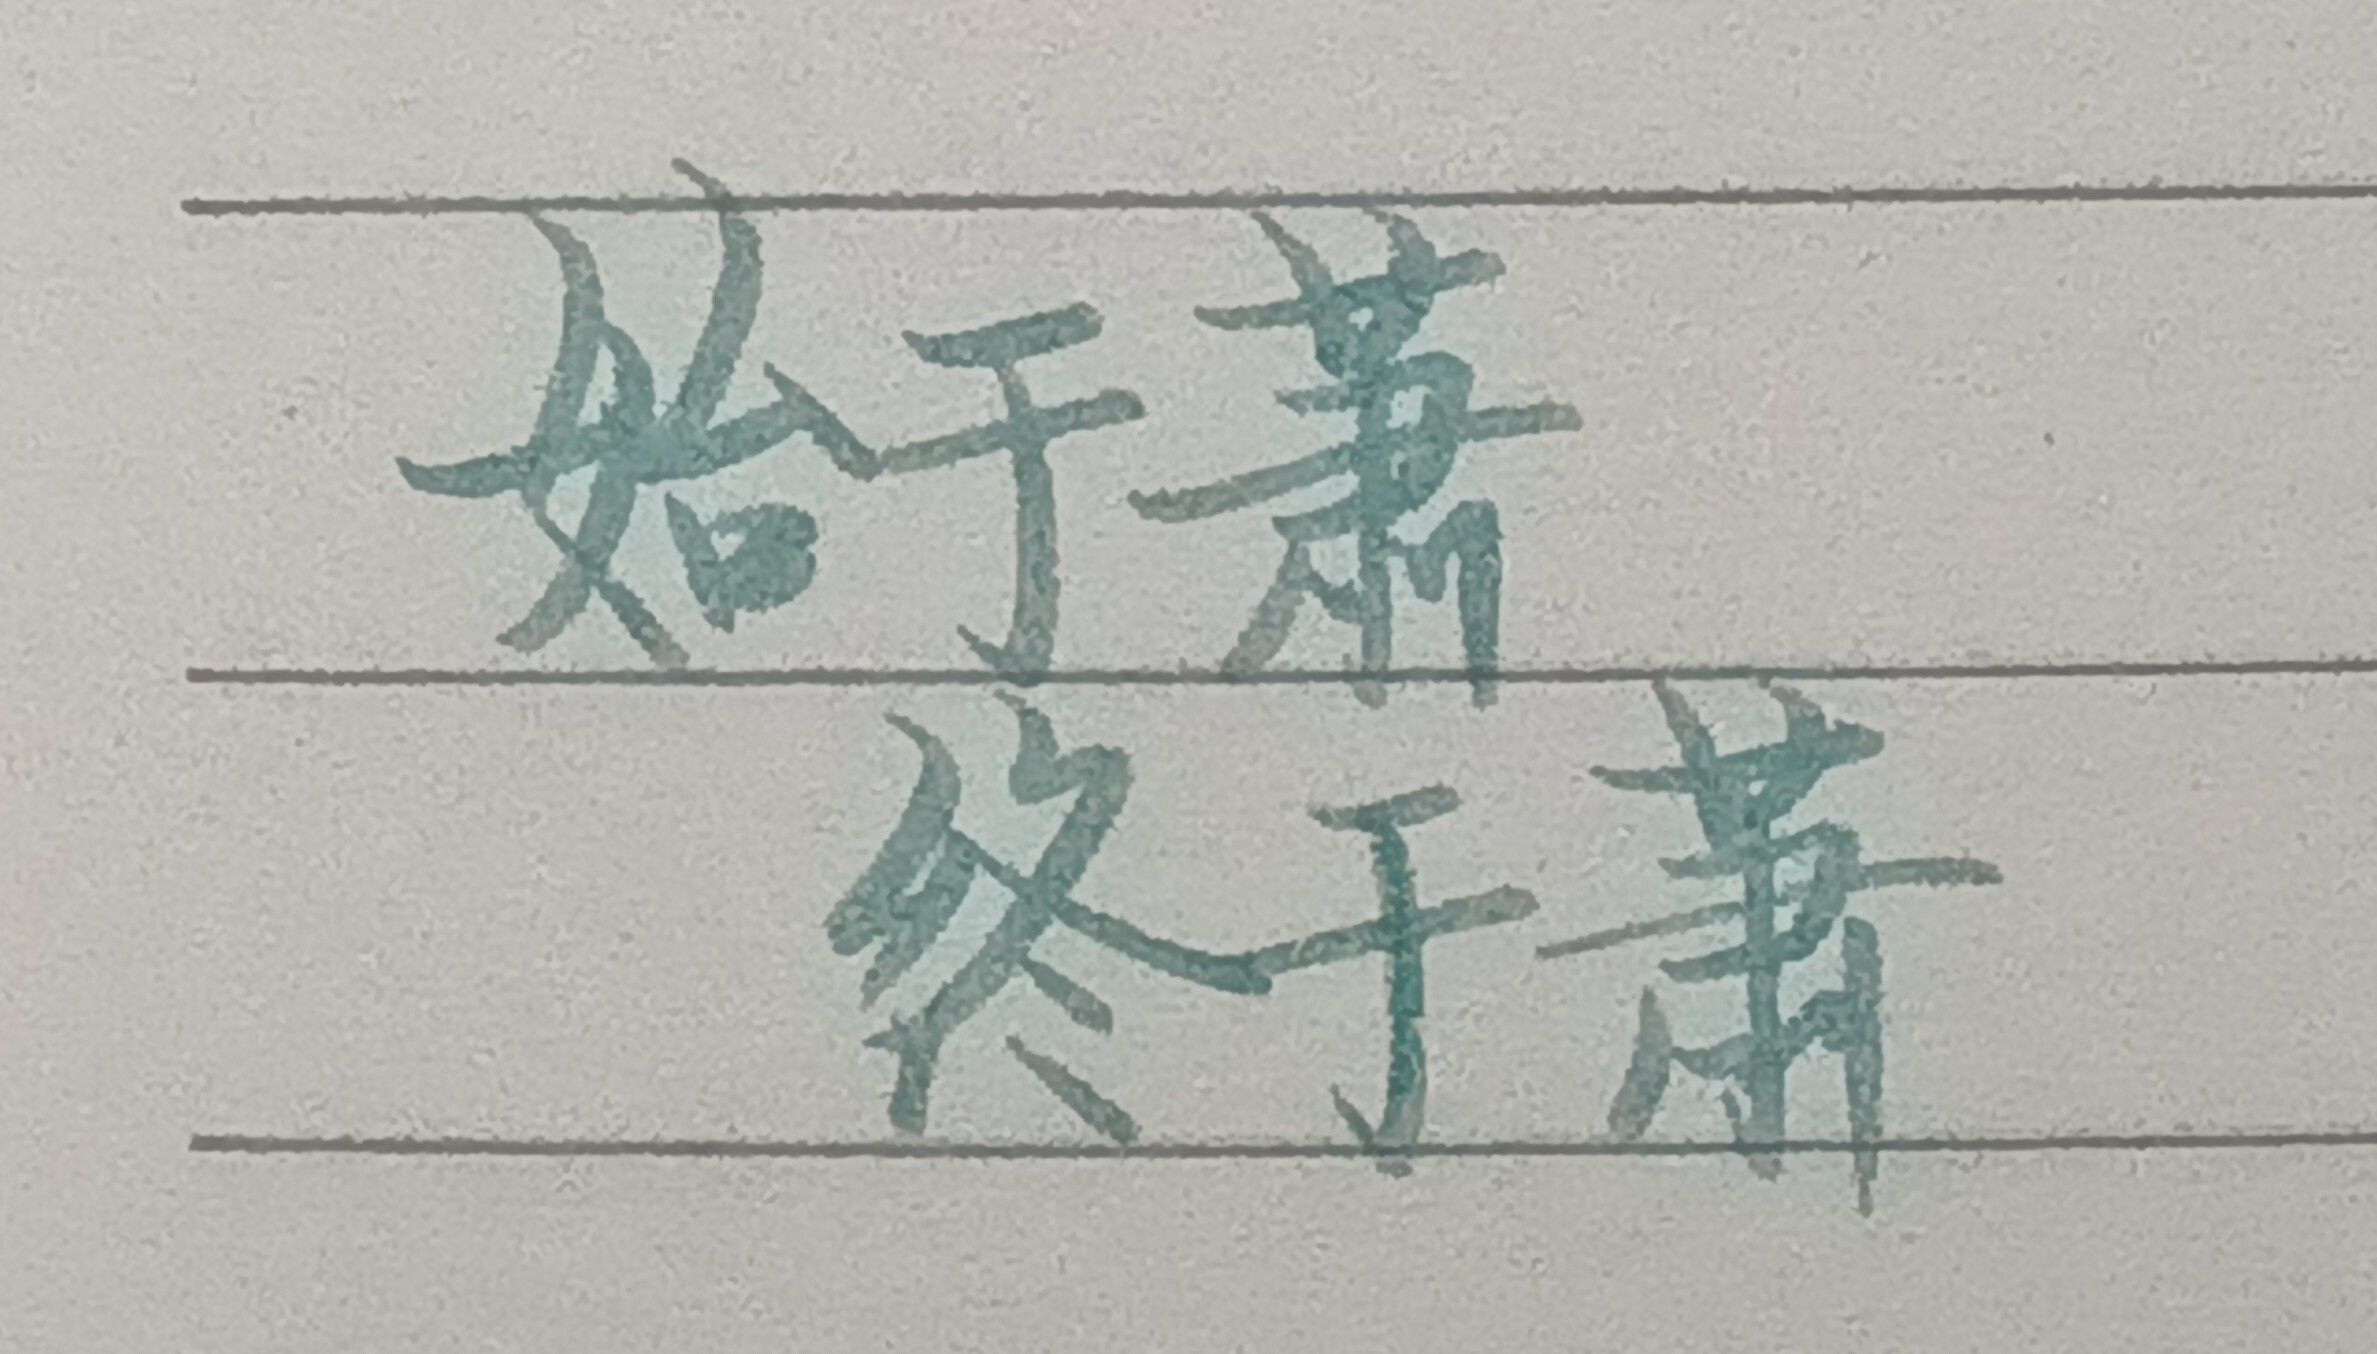 始于萧
终于萧